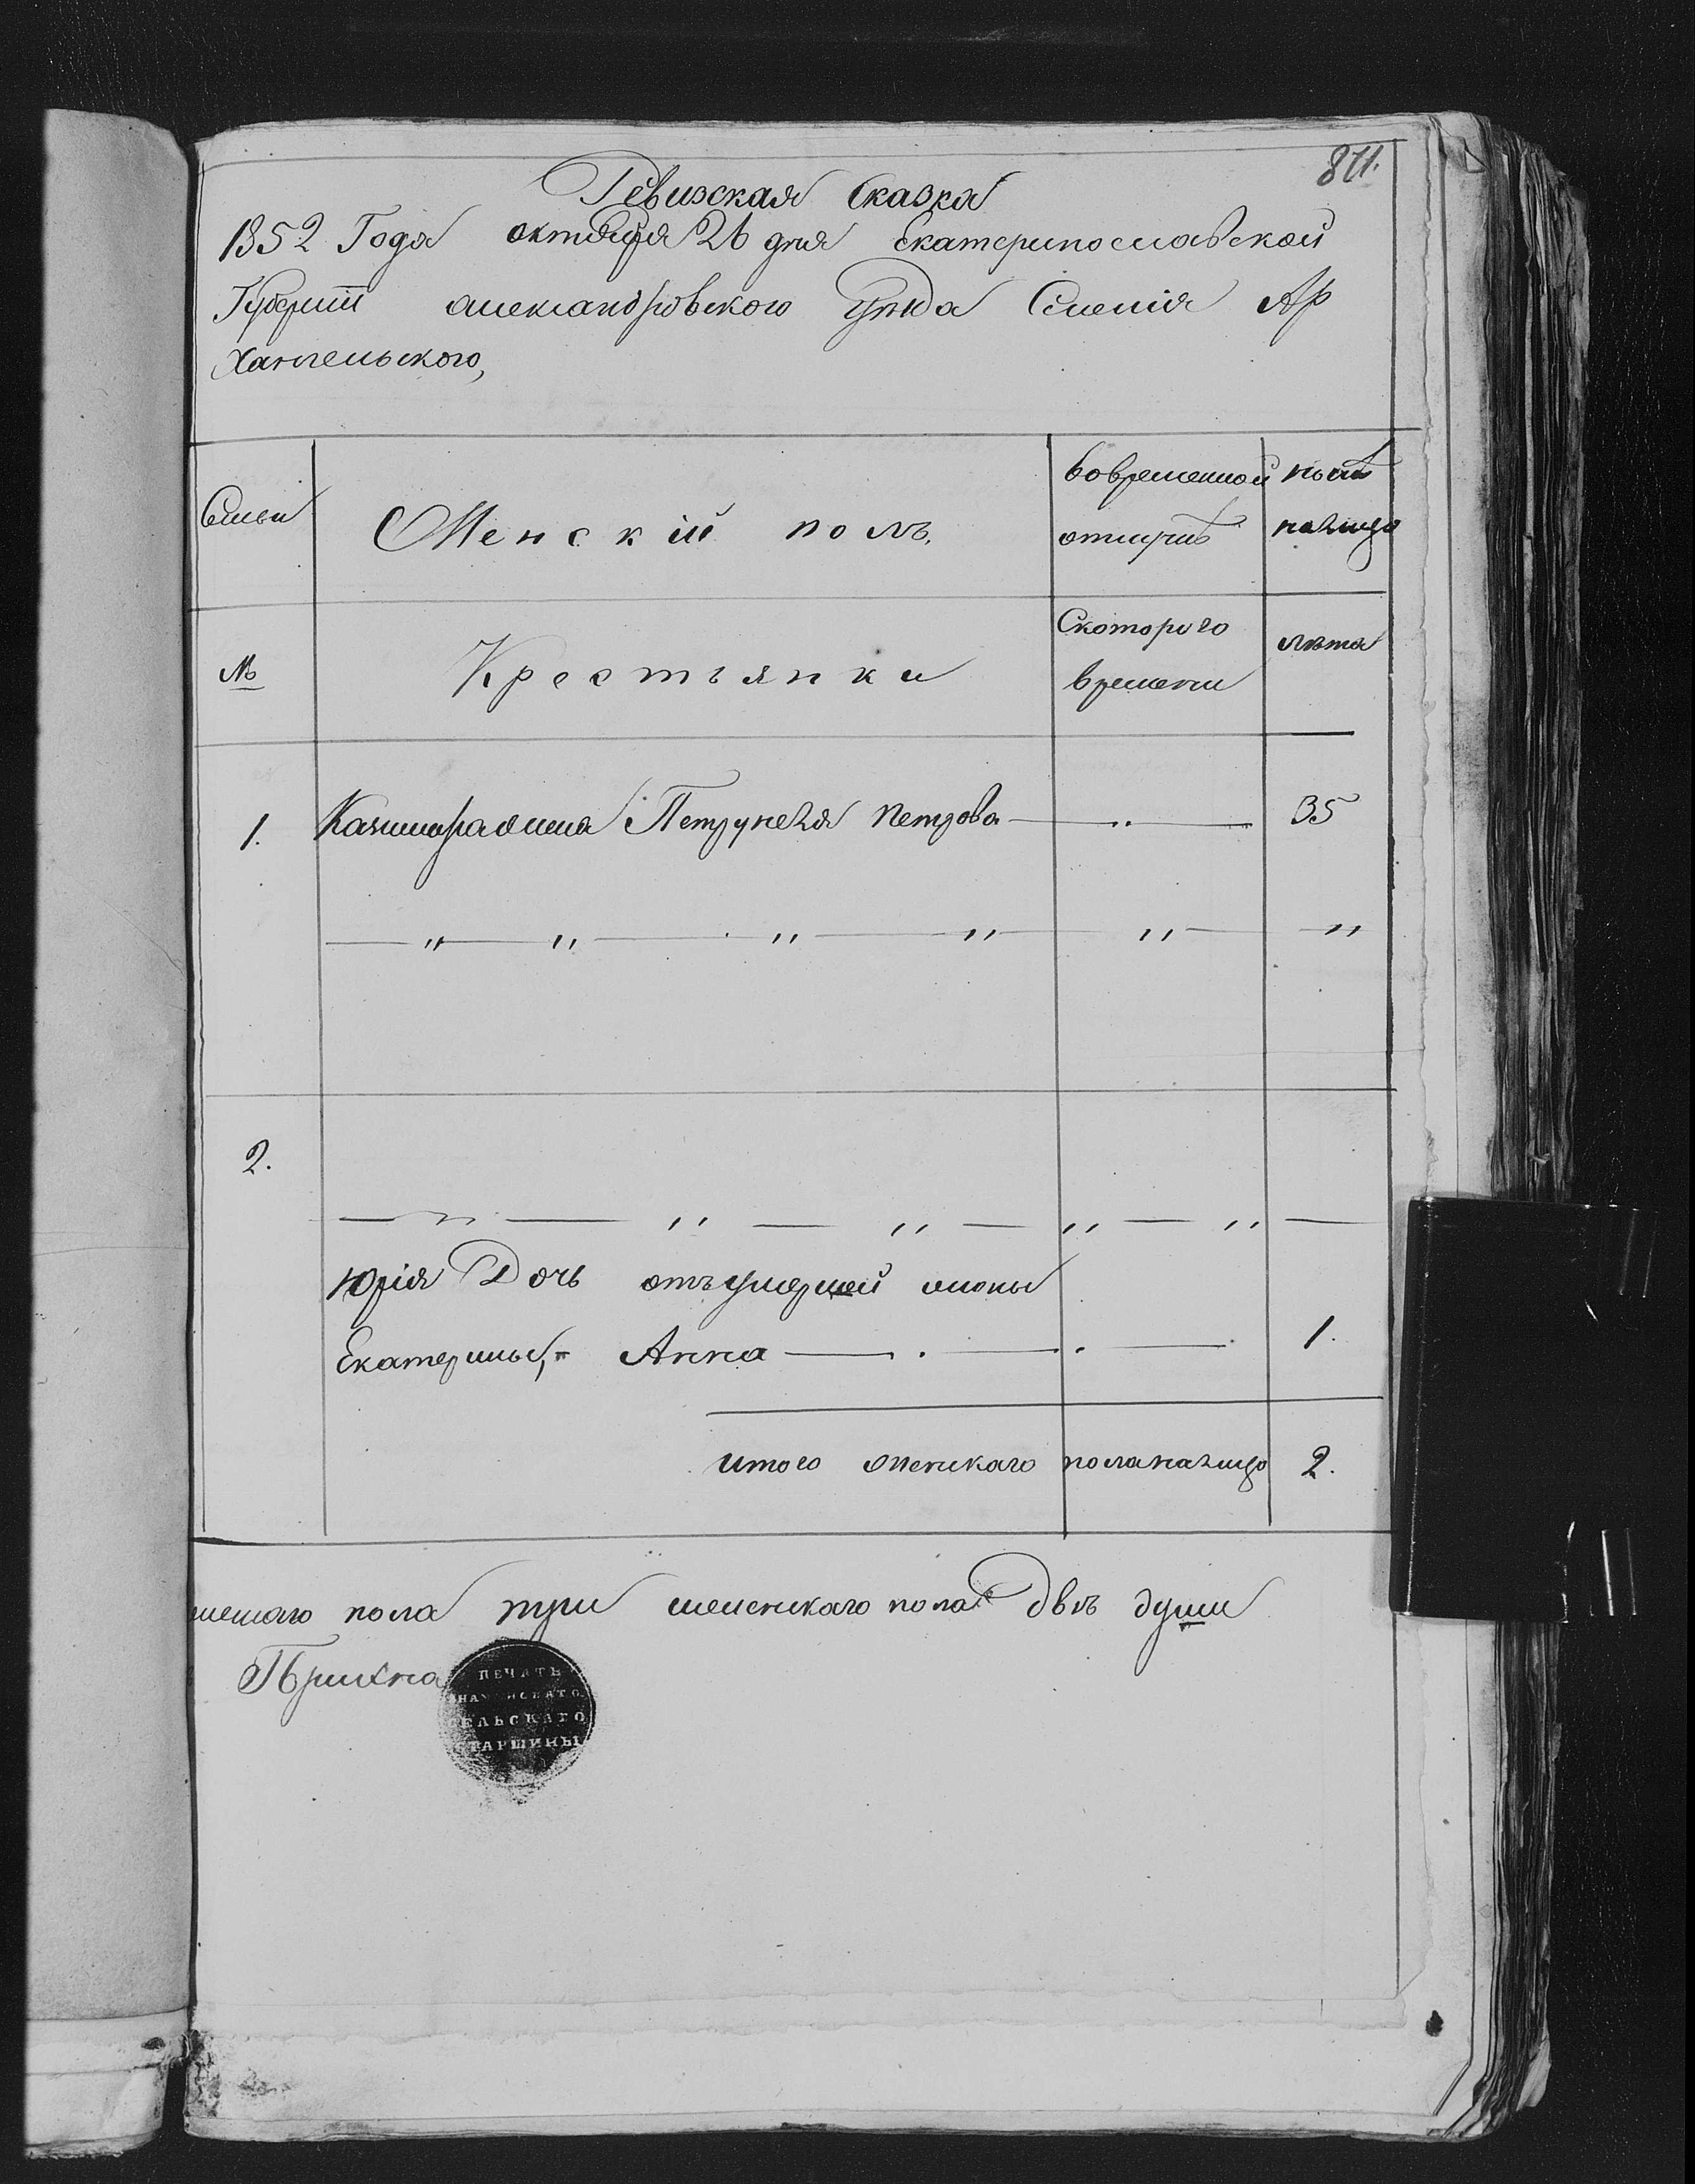 871.
Ревизская Сказка
1852 Года октября 26 дня Екатеринославской
Губернии александровского уѣзда Селенія Ар
Хангельского,
Семьи
Женскій полъ.
вовременной отлучкѣ
нынѣ налицо
№
Крестьянки
Скоторого времени
лѣта
1. Петрунеля петрова — „ — 35
— „ — „ — „ — „ — „ — „
2.
— „ — „ — „ — „ — „ —
Юрія Дочь отъумершей жоны
Екатерины, = Анна — . — . — 1.
итого женскаго пола налицо 2.
пола три женскаго пола двѣ души
ПЕЧАТЬ
ЕЛЬСКАГО
СТАРШИНЫ